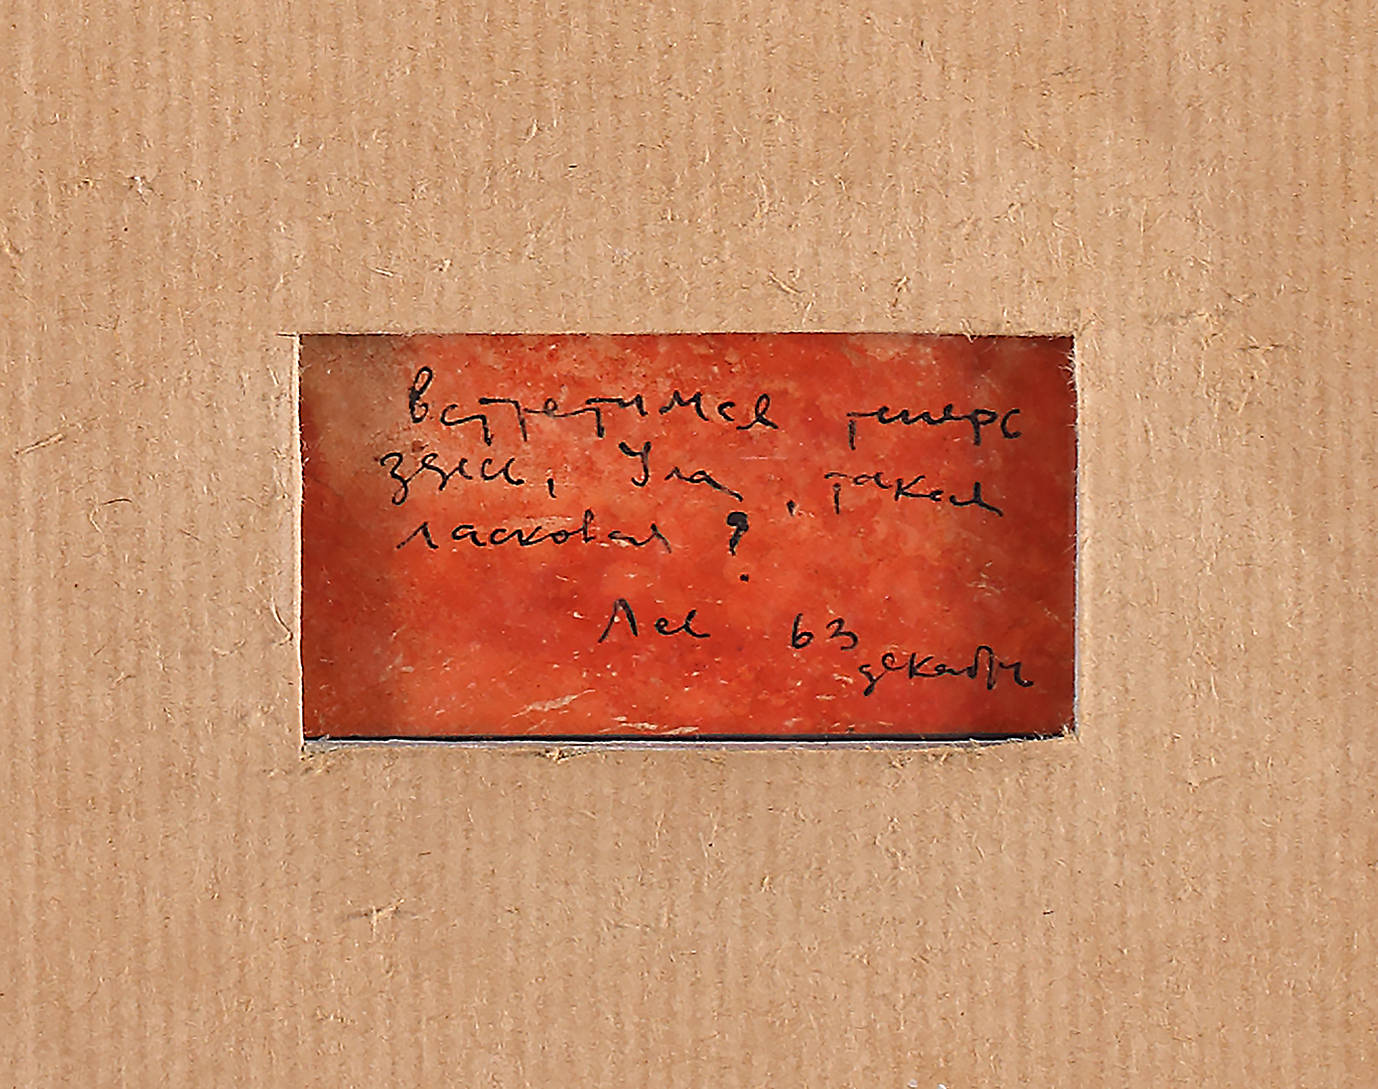 встретимся теперь
здесь, Ула, такая
ласковая?
Лев 63
декабрь